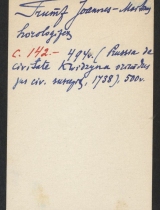 Trumpf Joannes-Martin
horologifex
c. 142. - 404v. (Prussia de
civitate Kvidzyna oriundus
jus civ. suscepit, 1738). 500v.